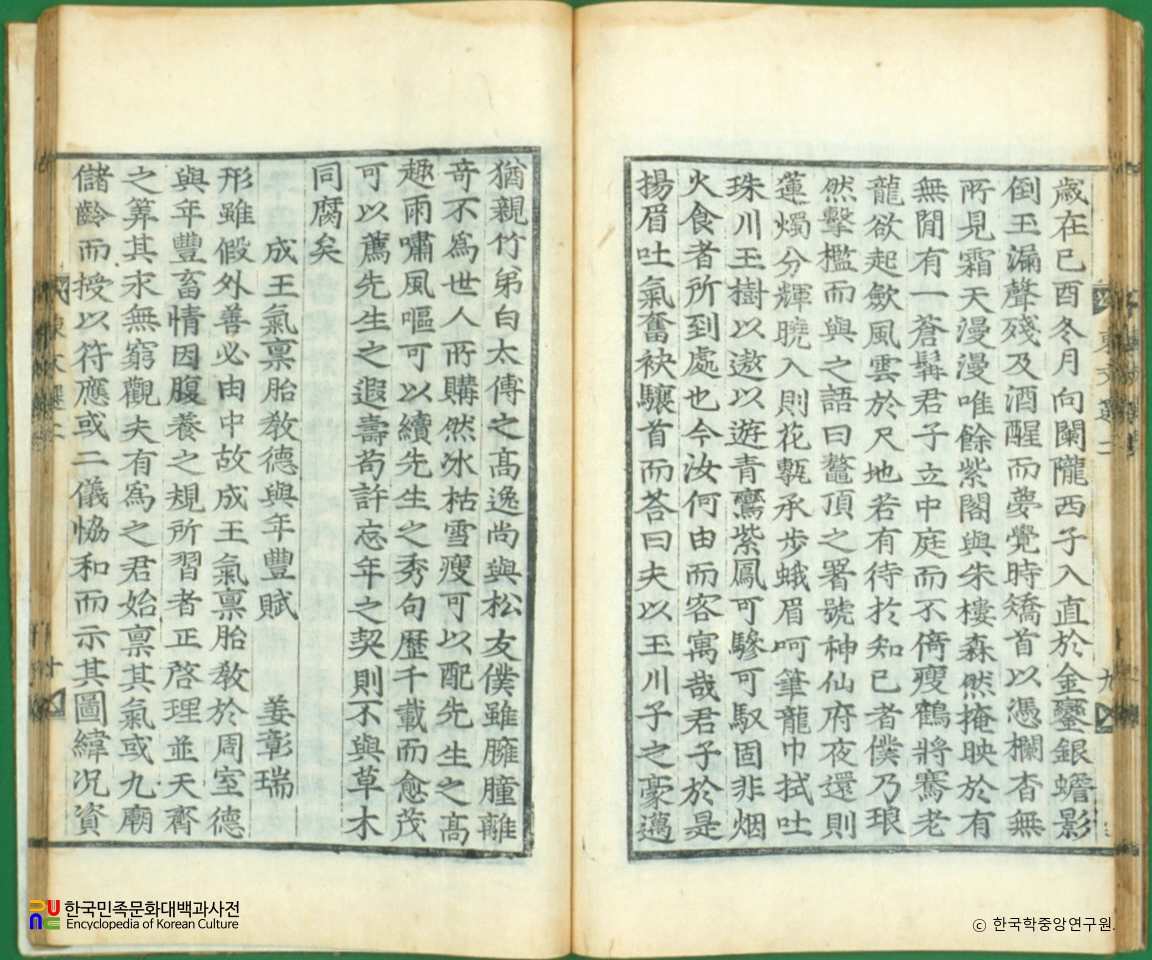 歲在己酉冬月向闌隴西子入直於金鑾銀蟾影
倒玉漏聲殘及酒醒而夢覺時矯首以憑欄杳無
所見霜天漫漫唯餘紫閣與朱樓森然掩映於有
無間有一蒼髯君子立中庭而不倚瘦鶴將騫老
龍欲起歛風雲於尺地若有待於知己者僕乃琅
然擊檻而與之語曰鼇頂之署號神仙府夜還則
蓮燭分輝曉入則花甎承步蛾眉呵筆龍巾拭吐
珠川玉樹以遨以遊青鸞紫鳳可驂可馭固非烟
火食者所到處也今汝何由而客寓哉君子於是
揚眉吐氣奮袂驤首而荅曰夫以玉川子之豪邁
東文選二
九
猶親竹弟白太傅之高逸尚與松友僕雖臃腫離
竒不爲世人所購然冰枯雪瘦可以配先生之高
趣雨嘯風嘔可以續先生之秀句歷千載而愈茂
可以薦先生之遐壽苟許忘年之契則不與草木
同腐矣
成王氣禀胎教德與年豐賦 姜彰瑞
形雖假外善必由中故成王氣禀胎教於周室德
與年豐畜情因腹養之規所習者正啓理並天齊
之筭其求無窮觀夫有爲之君始禀其氣或九廟
儲齡而授以符應或二儀恊和而示其圖緯况資
한국민족문화대백과사전
Encyclopedia of Korean Culture
ⓒ 한국학중앙연구원.